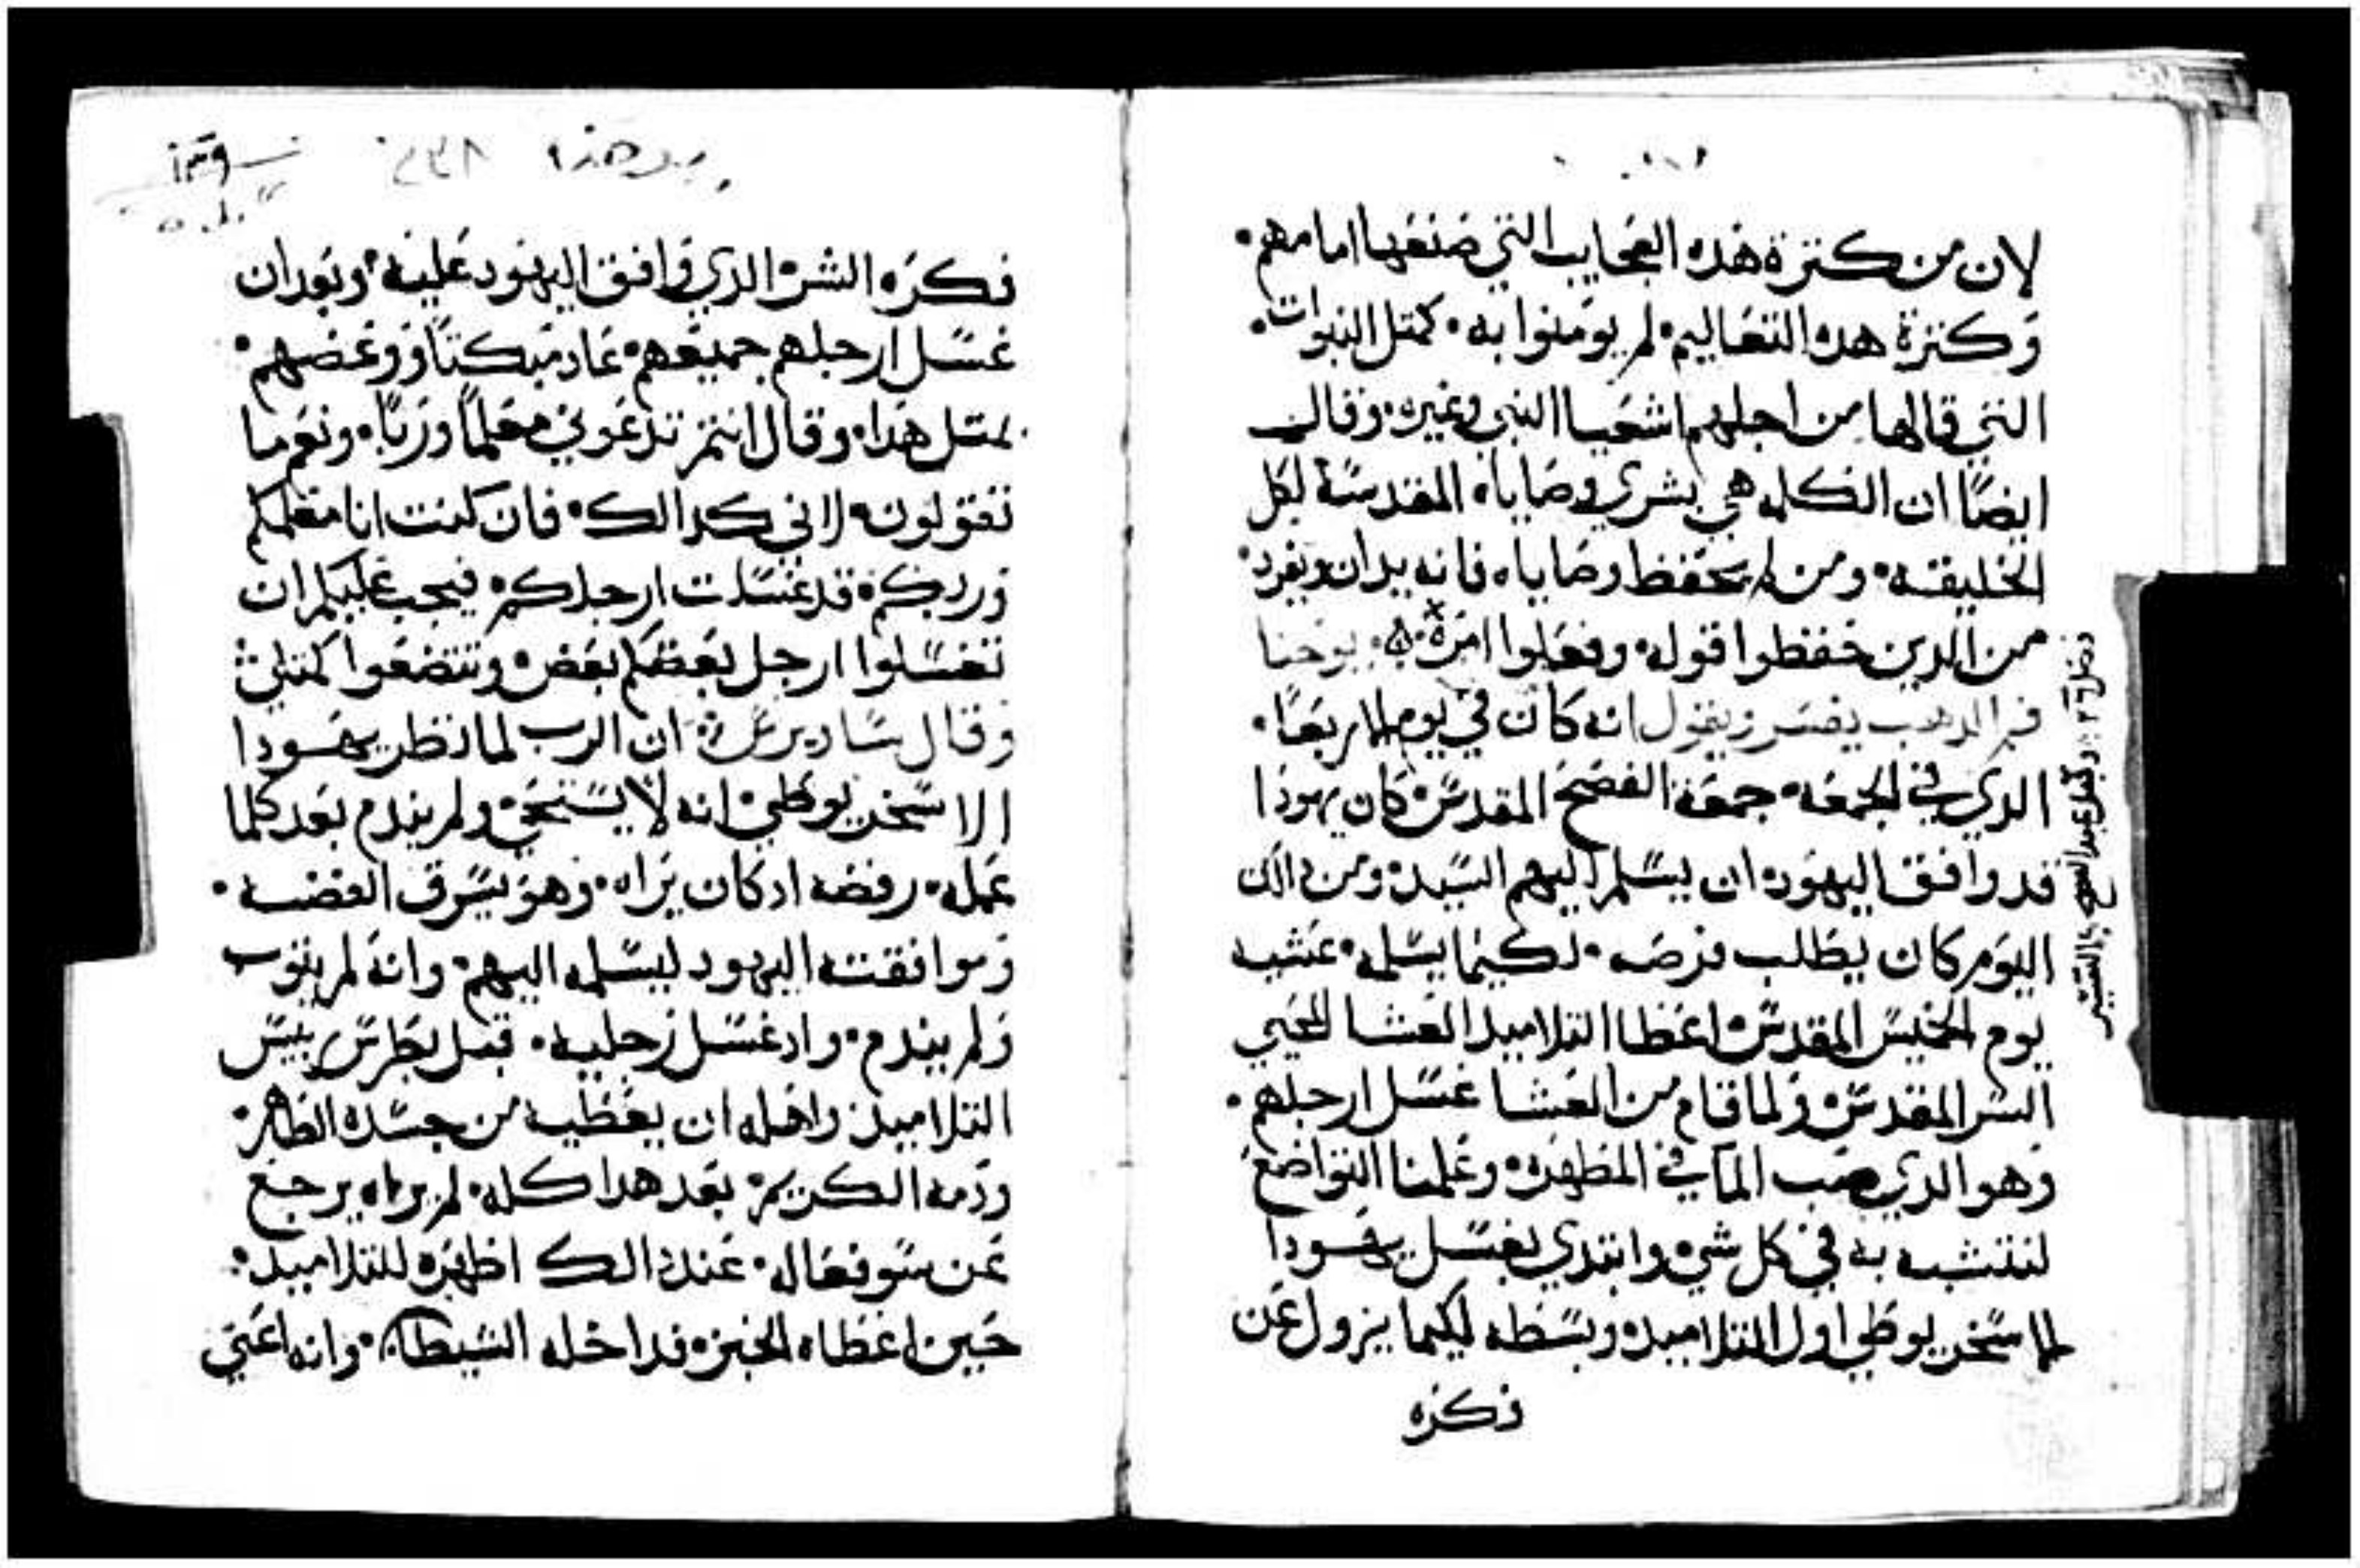 لان من كترة هذه العجايب التي صنعها امامهم.
وكترة هده التعاليم. لم يومنوا به. كمتل النبوات.
التي قالها من اجلهم اشعيا النبي وغيره. وقال
ايضًا ان الكلمه هي بشري وصاياه المقدسة لكل
الخليقه. ومن لم يحفظ وصاياه فانه يدان ويفرد.
من الدين حفظوا قوله. وفعلوا امره. يوحنا
فم الدهب يفسر ويقول انه كان في يوم الاربعا.
الدي في الجمعه. جمعة الفصح المقدس. كان يهودا
قد وافق اليهود. ان يسلم اليهم السيد. ومن دالك
اليوم كان يطلب فرصه. لكيما يسلمه. عشيه
يوم الخميس المقدس. اعطا التلاميد العشا المحيي
السر المقدس. ولما قام من العشا غسل ارجلهم.
وهو الدي صب الما في المطهره. وعلمنا التواضع
لنتشبه به في كل شي. وابتدي بغسل يهودا
الاسخريوطي اول التلاميد. وبسطه ليكيما يزول عن
فكره
١٣٩
فكره الشر الدي وافق اليهود عليه. وبعد ان
غسل ارجلهم جميعهم. عاد مبكتًا ووعضهم.
بمتل هدا. وقال انتم تدعوني معلمًا وربًا. ونعم ما
تقولون. لاني كدالك. فان كنت انا معلمكم
وربكم. قد غسلت ارجلكم. فيجب عليكم ان
تغسلوا ارجل بعضكم بعض. وتتضعوا كمتلي.
وقال ان الرب لما نظر يهودا
الاسخريوطي. انه لا يستحق. ولم يندم بعد كلما
عمله. رفضه ادكان يراه. وهو يسرق الفضه.
وموافقته اليهود ليسلمه اليهم. وانه لم يتوب
ولم يندم. واد غسل رجليه. قبل بطرس ريس
التلاميد. واهله ان يعطيه من جسده الطاهر.
ودمه الكريم. بعد هدا كله. لم يراه يرجع
عن سو فعاله. عند دالك اظهره للتلاميد.
حين اعطاه الخبز. فداخله الشيطان. وانه اعني